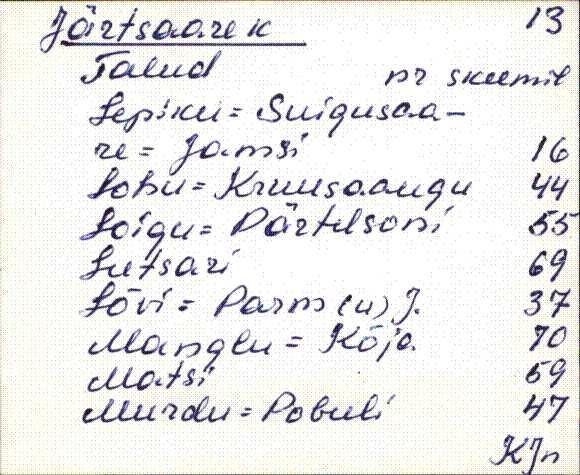 Järtsaare k 13
Talud nr skeemil
Lepiku = Suigusaa-
re = Jamsi 16
Lobu = Kruusaaugu 44
Loigu = Pärtelsoni 55
Lutsari 69
Lõvi = Parm (u) J. 37
Manglu = Kõja 70
Matsi 59
Murdu = Pobuli 47
KJn